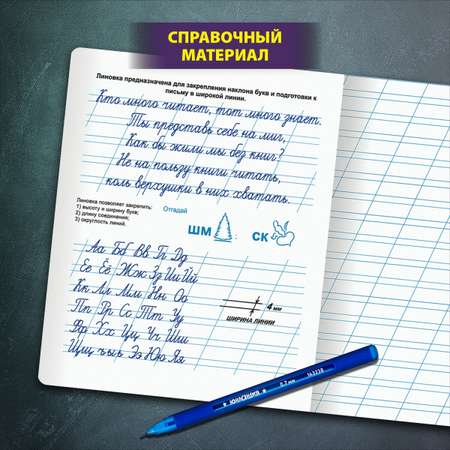 СПРАВОЧНЫЙ
МАТЕРИАЛ
Линовка предназначена для закрепления наклона букв и подготовки к
письму в широкой линии.
Кто много читает, тот много знает.
Ты представь себе на миг,
Как бы жили мы без книг?
Не на пользу книги читать,
коль верхушки в них хватать.
Линовка позволяет закрепить:
1) высоту и ширину букв;
2) длину соединения;
3) округлость линий.
Отгадай
ШМ
СК
Аа Бб Вв Гг Дд
Ее Ёё Жж Зз Ии Йй
Кк Лл Мм Нн Оо
Пп Рр Сс Тт Уу
Фф Хх Цц Чч Шш
Щщ ъ ы ь Ээ Юю Яя
4 мм
ШИРИНА ЛИНИИ
ЮНЛАНДИЯ
0,7 мм
143238